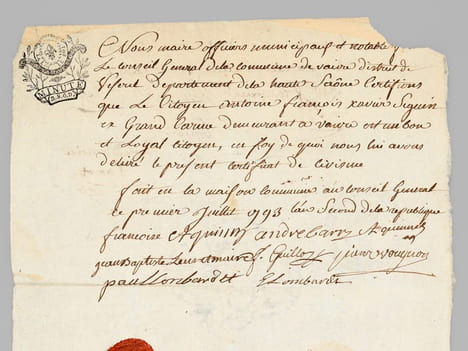 MINUTE
Nous maire officiers municipaux et notable
Le Conseil General de la commune de vaivre district de
Vesoul Departement de la haute Saône Certifions
que Le Citoyen antoine françois xavier Seguin
ex Grand Carme demeurant à vaivre est un bon
et Loyal citoyen, en foy de quoi nous lui avons
delivré le present certificat de civisme
fait en la maison commune au conseil General
le premier Juillet 1793 L'an Second de la republique
françoise andre barry
jean Baptiste maire f. Guilloz pierre vougnon
paul Lombardet Lombardet